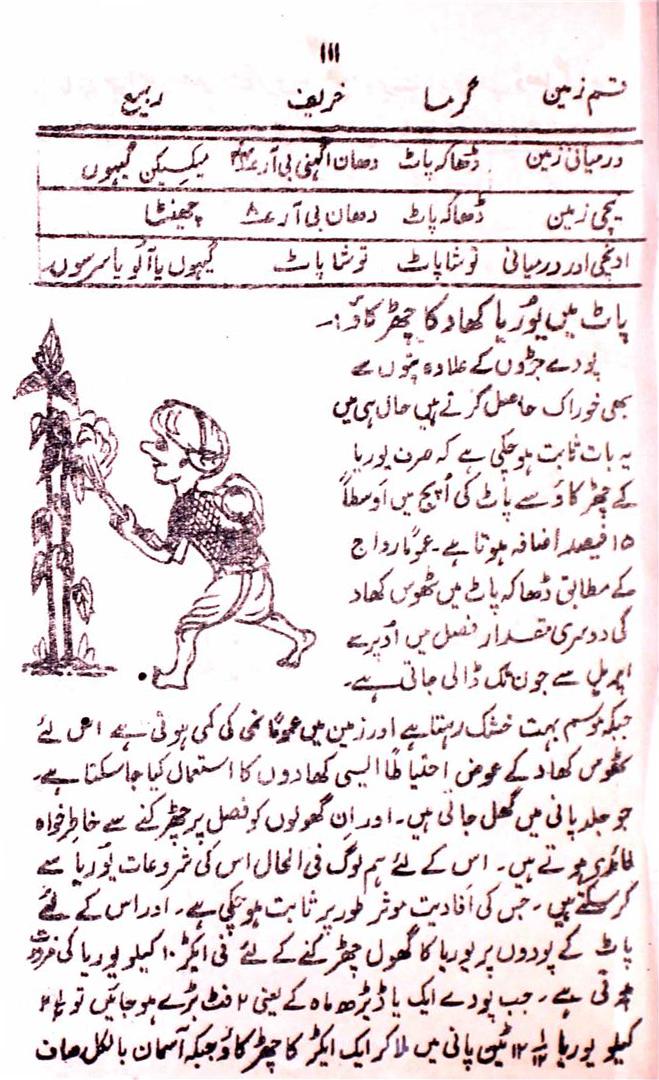 ۱۱۱
قسم زمین گرما خریف ربیع
درمیانی زمین ڈھاکہ پاٹ دھان اگہنی بی آر میکسیکن گیہوں
نیچی زمین ڈھاکہ پاٹ دھان بی آر ۸ چھنٹا
اونچی اور درمیانی توشا پاٹ توشا پاٹ گیہوں یا آلو یا سرسوں
پاٹ میں یوریا کھاد کا چھڑکاؤ:۔
پودے جڑوں کے علاوہ پتوں سے
بھی خوراک حاصل کرتے ہیں حال ہی میں
یہ بات ثابت ہو چکی ہے کہ صرف یوریا
کے چھڑکاؤ سے پاٹ کی اُپج میں اوسطاً
۱۵ فیصد اضافہ ہوتا ہے۔ عموماً رواج
کے مطابق ڈھاکہ پاٹ میں ٹھوس کھاد
کی دوسری مقدار فصل میں اُوپرے
اپریل سے جون تک ڈالی جاتی ہے۔
جبکہ موسم بہت خشک رہتا ہے اور زمین میں عموماً نمی کی کمی ہوتی ہے اس لئے
ٹھوس کھاد کے عوض احتیاطاً ایسی کھادوں کا استعمال کیا جا سکتا ہے۔
جو جلد پانی میں گھل جاتی ہیں۔ اور اِن گھولوں کو فصل پر چھڑکنے سے خاطر خواہ
فائدے ہوتے ہیں۔ اس کے لئے ہم لوگ فی الحال اس کی شروعات یوریا سے
کر سکتے ہیں۔ جس کی افادیت موثر طور پر ثابت ہو چکی ہے۔ اور اس کے لئے
پاٹ کے پودوں پر یوریا کا گھول چھڑکنے کے لئے فی ایکڑ ۱۰ کیلو یوریا کی ضرورت
ہوتی ہے۔ جب پودے ایک یا ڈیڑھ ماہ کے یعنی ۲ فٹ بڑے ہو جائیں تو
کیلو یوریا ۱۲ ٹین پانی میں ملا کر ایک ایکڑ کا چھڑکاؤ جبکہ آسمان بالکل صاف